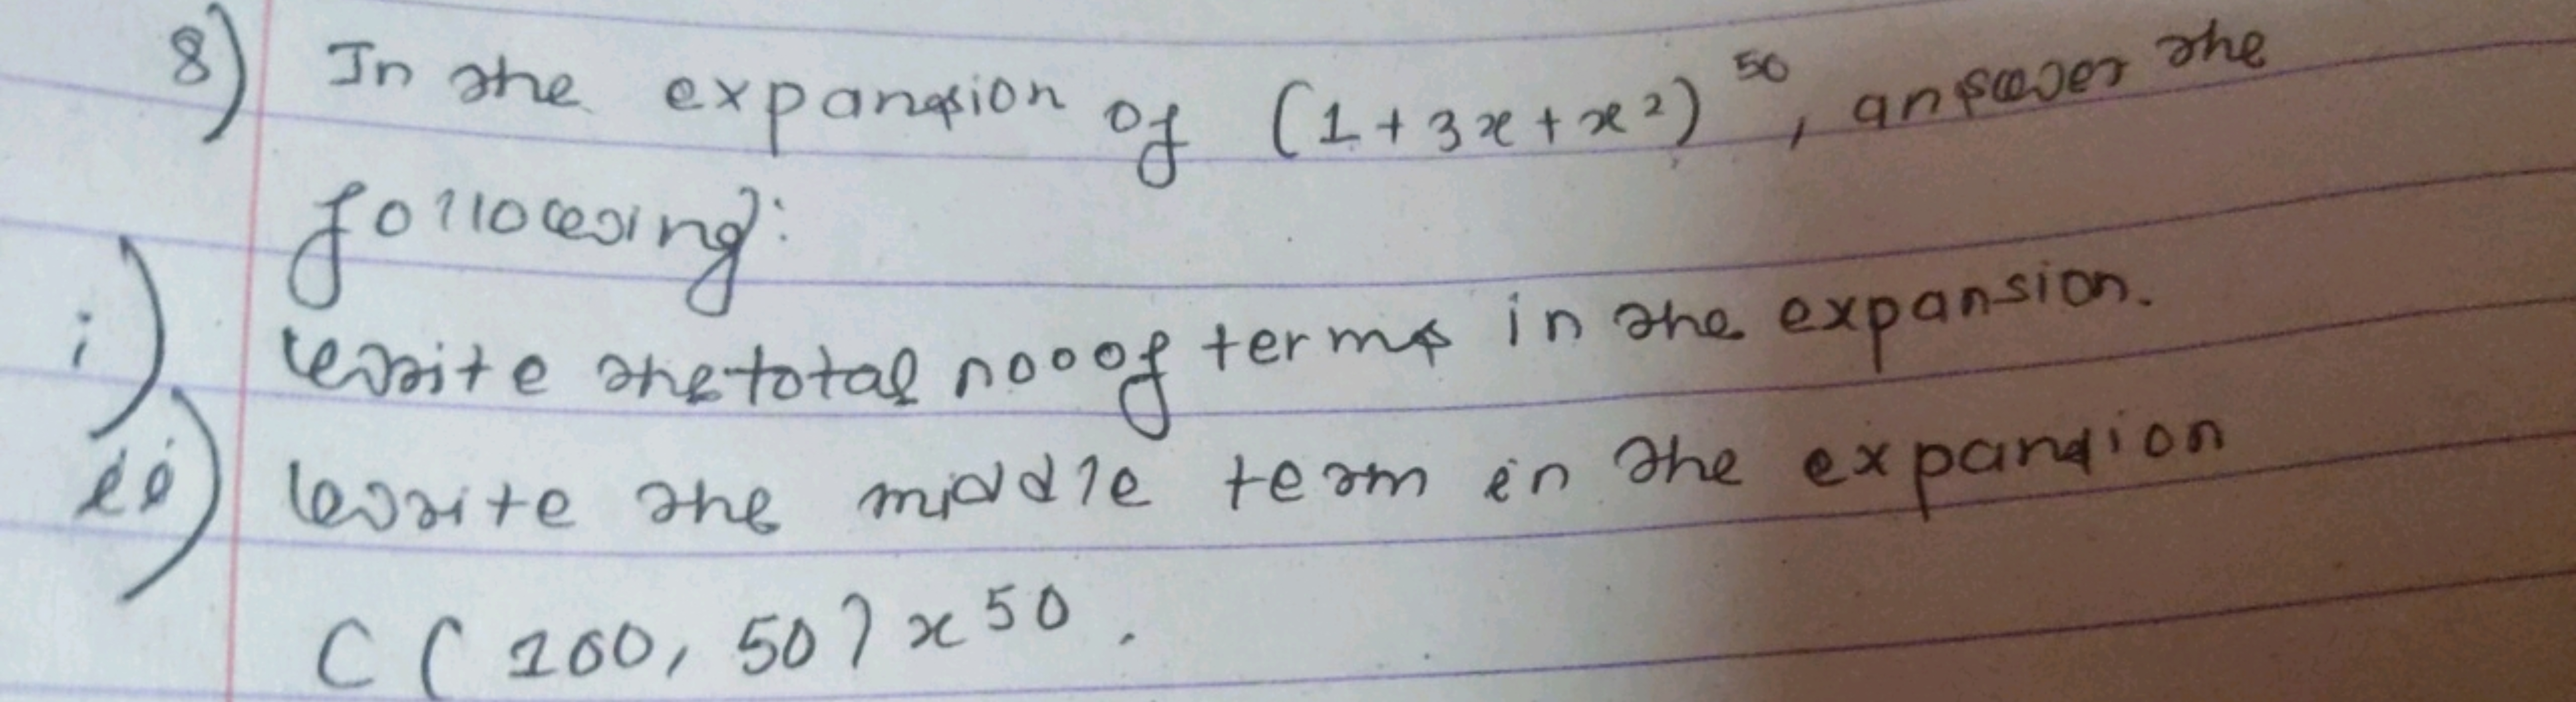 8) In the expansion of (1+3x+x²)⁵⁰, answer the
following:
i) write the total no of terms in the expansion.
ii) write the middle term in the expansion
C(100, 50) x⁵⁰.